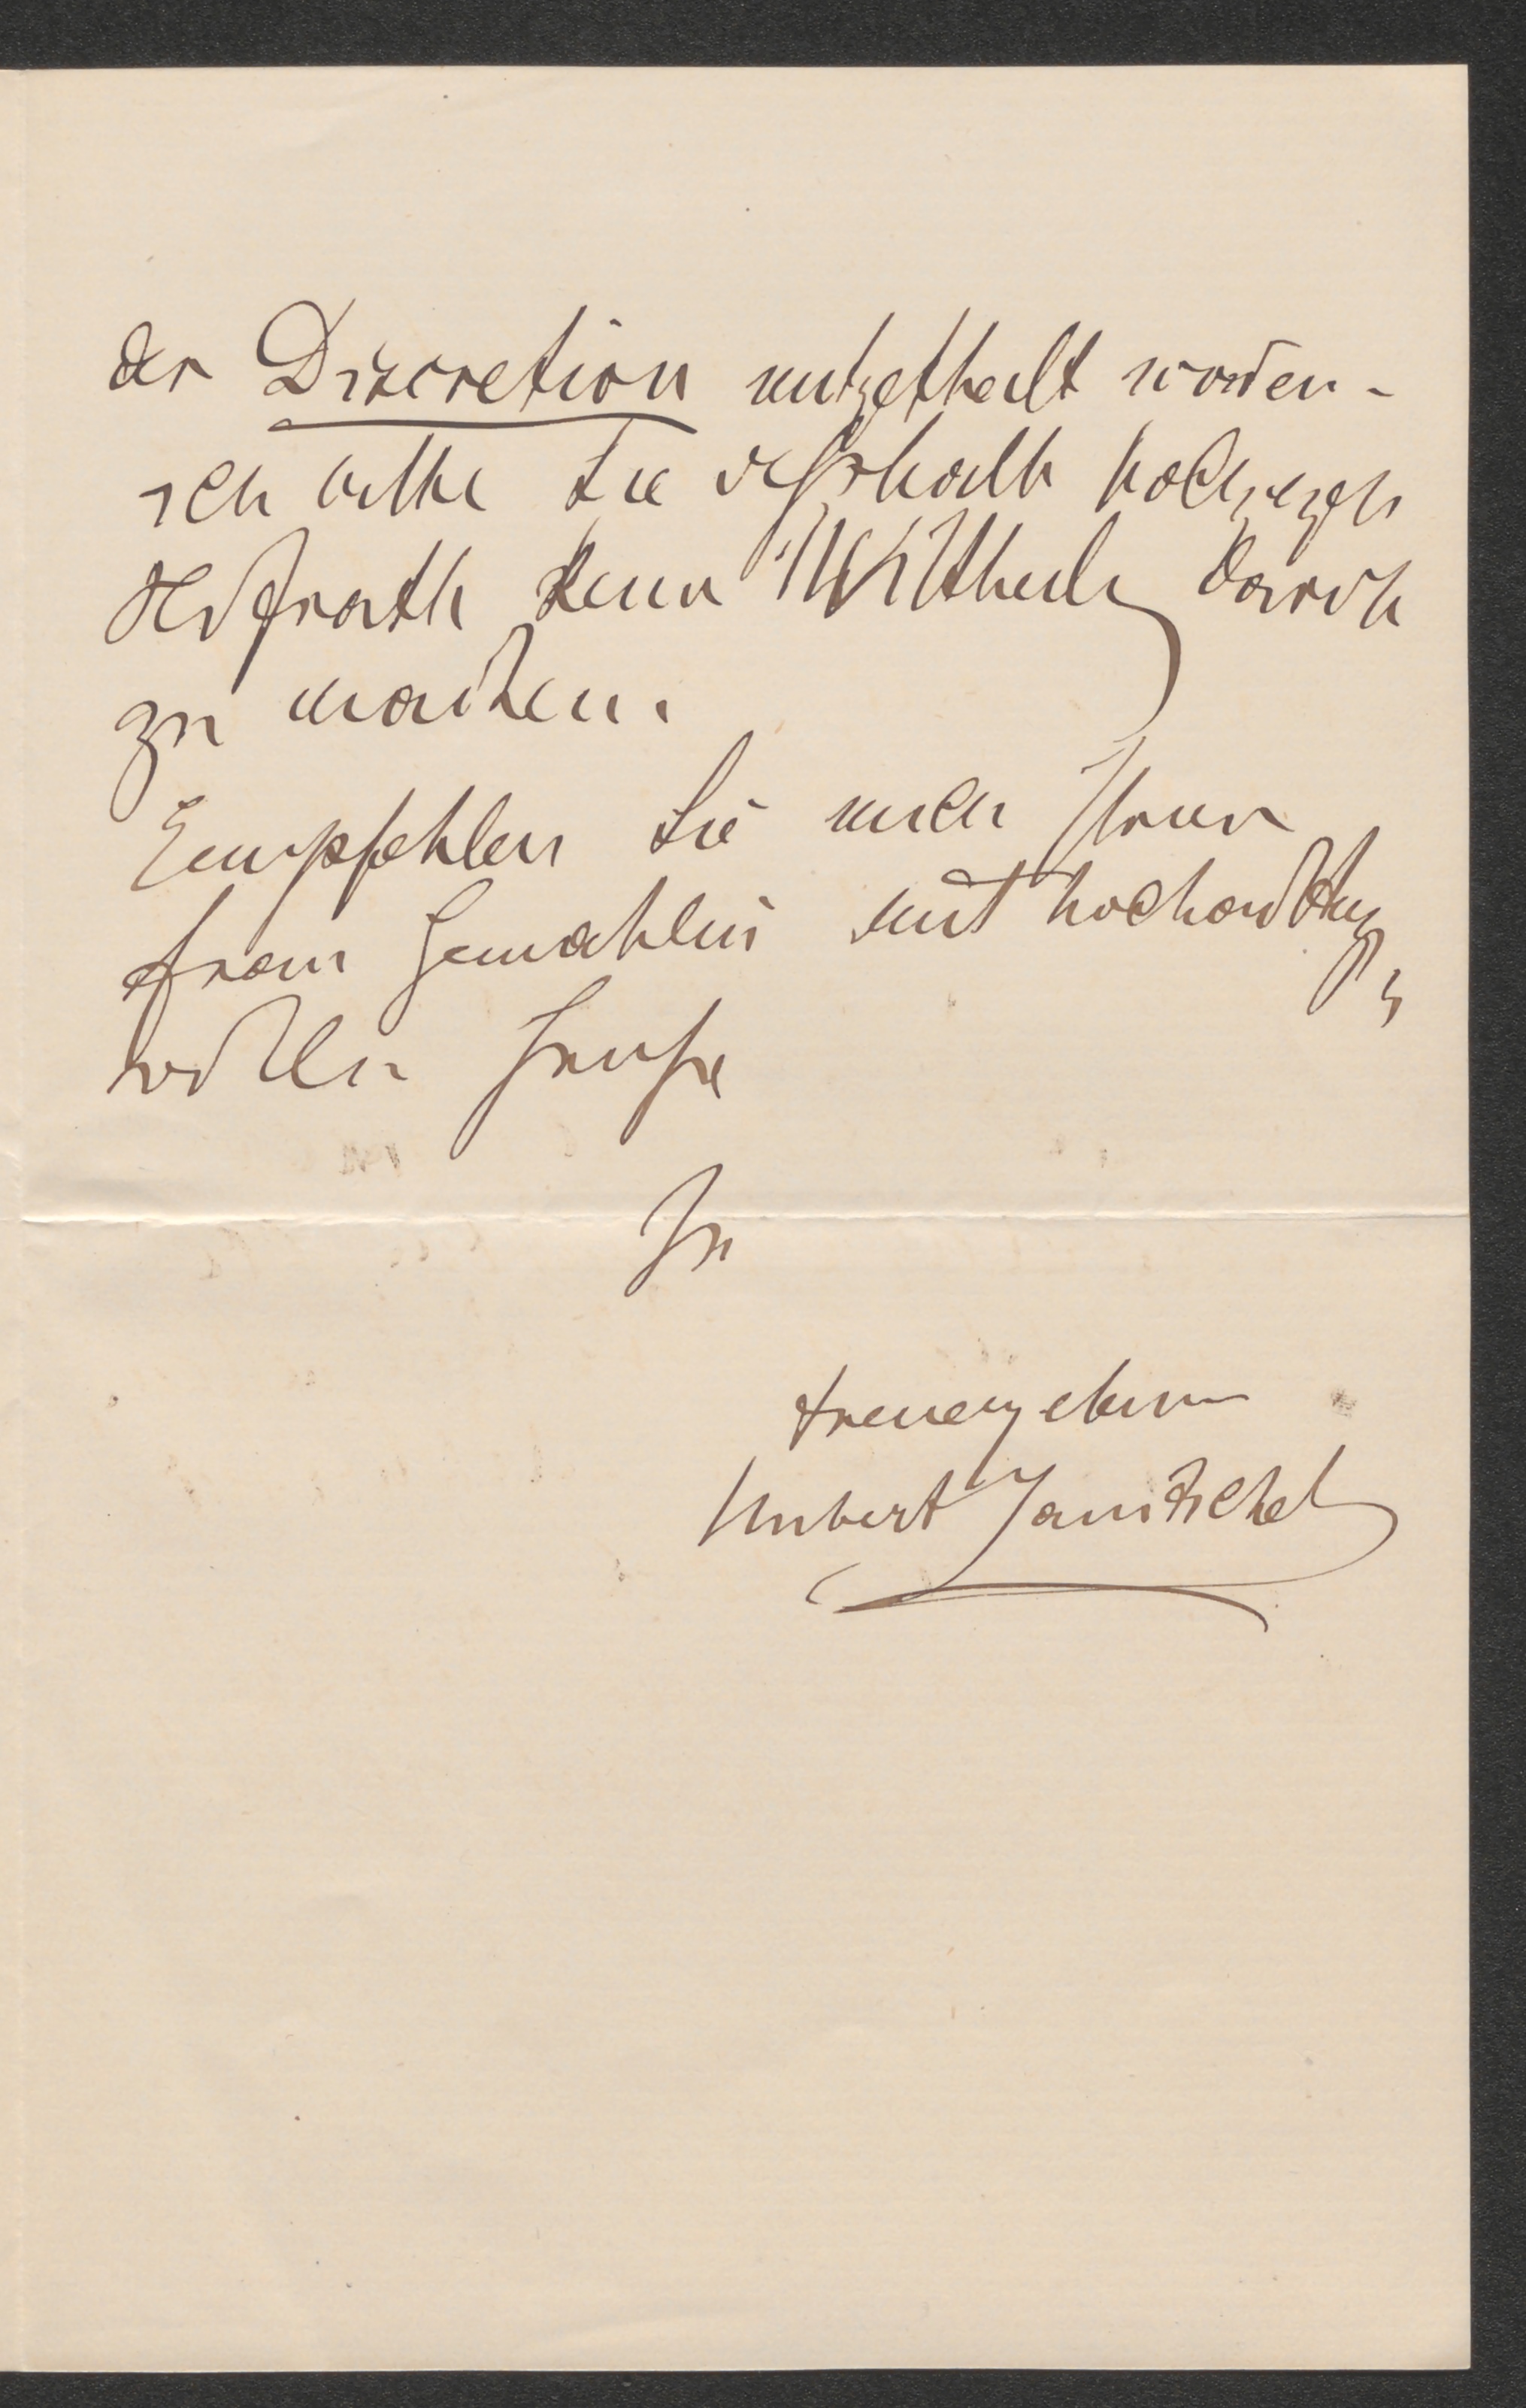 der Discretion mitgetheilt worden -
ich bitte Sie deßhalb hochzuver
Hofrath keine Mittheilg davon
zu machen.
Empfehlen Sie mich Ihrer
Frau Gemahlin mit hochachtungs
vollen Gruße
Ihr
treuergebener
Hubert Janitschek